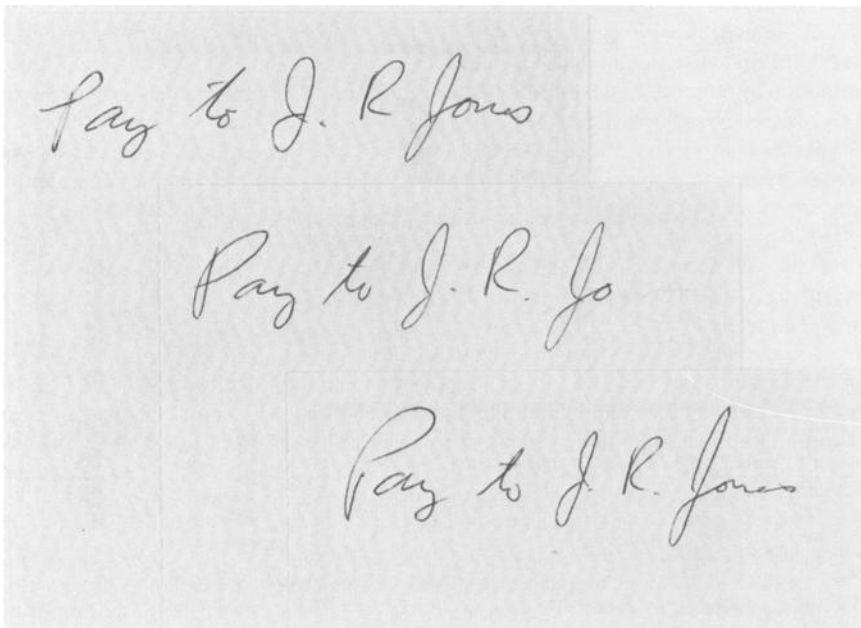 Pay to J. R Jones
Pay to J. R. Jo
Pay to J. R. Jones